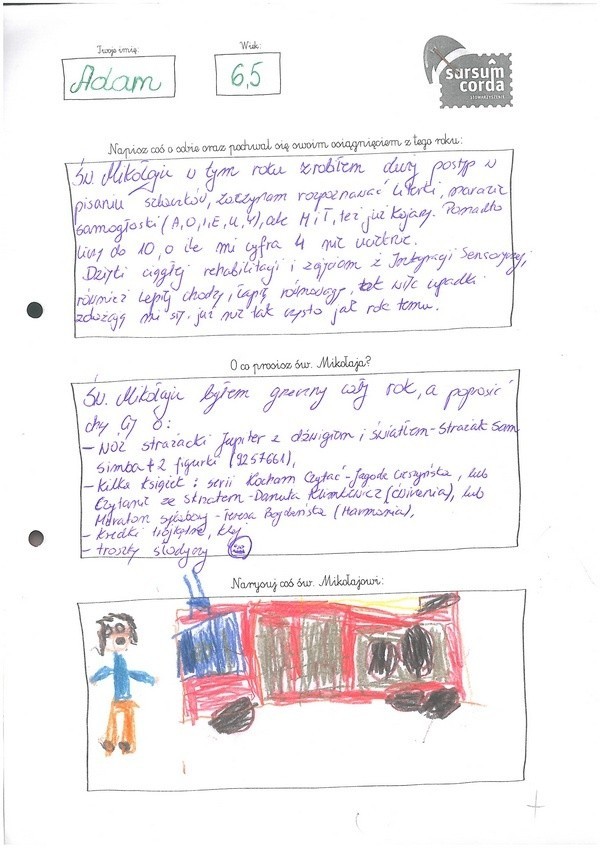 Twoje imię:
Wiek:
Adam
6,5
sursum
corda
STOWARZYSZENIE
Napisz coś o sobie oraz pochwal się swoim osiągnięciem z tego roku:
Św. Mikołaju w tym roku zrobiłem duży postęp w
pisaniu szlaczków, zaczynam rozpoznawać literki, narazie
samogłoski (A, O, I, E, U, Y), ale M i T, też już kojarzę. Ponadto
liczę do 10, o ile mi cyfra 4 nie ucieknie.
Dzięki ciągłej rehabilitacji i zajęciom z Integracji Sensorycznej,
również lepiej chodzę, łapię równowagę, tak więc upadki
zdarzają mi się już nie tak często jak rok temu.
O co prosisz św. Mikołaja?
Św. Mikołaju byłem grzeczny cały rok, a poprosić
chcę Cię o:
- Wóz strażacki Jupiter z dźwigiem i światłem - Strażak Sam
Simba + 2 figurki (9257661),
- Kilka książek z serii Kocham Czytać - Jagoda Cieszyńska, lub
Czytanie ze strzałem - Danuta Klimkiewicz (ćwiczenia), lub
Maraton sylabowy - Teresa Bogdańska (Harmonia),
- kredki trójkątne, klej
- troszkę słodyczy
Narysuj coś św. Mikołajowi: